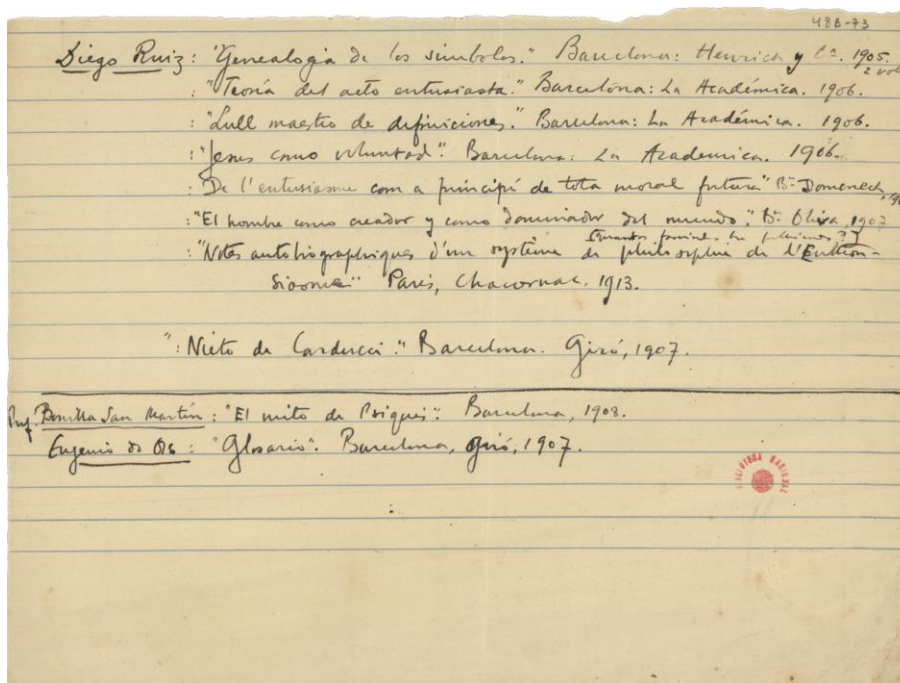 48B-73
Diego Ruiz: "Genealogia de los simbolos." Barcelona: Henrich y Cª. 1905.
2 vol
: "Teoría del acto entusiasta." Barcelona: La Académica. 1906.
: "Lull maestro de definiciones." Barcelona: La Académica. 1906.
: "Jesus como voluntad". Barcelona: La Academica. 1906.
: De l'entusiasme com a principi de tota moral futura" Bª Domenech,
: "El hombre como creador y como dominador del mundo." Bª. Oliva 1907
: "Notes autobiographiques d'un système de philosophie de l'Enthou-
siasme" Paris, Chacornac. 1913.
": Nieto de Carducci." Barcelona. Giró, 1907.
Prof. Bonilla San Martín: "El mito de Psiquis". Barcelona, 1908.
Eugenio do Ors: "Glosario". Barcelona, Giró, 1907.
BIBLIOTECA NACIONAL